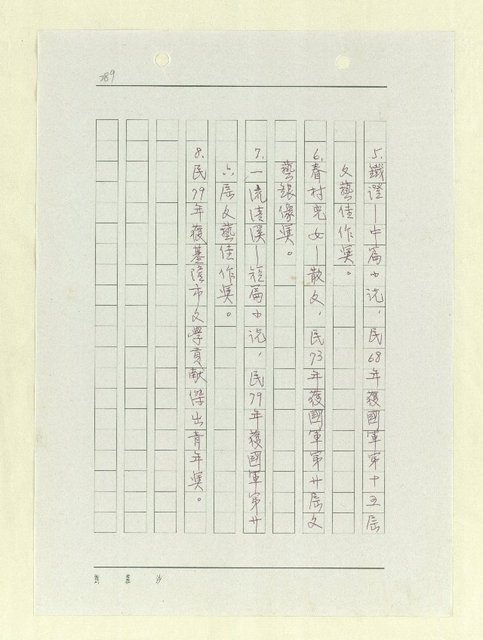 289
5.鐵證—中篇小說，民68年獲國軍第十五屆
文藝佳作獎。
6.眷村兒女—散文，民73年獲國軍第廿屆文
藝銀像獎。
7.一流清溪—短篇小說，民79年獲國軍第廿
六屆文藝佳作獎。
8.民79年獲基隆市文學貢獻傑出青年獎。